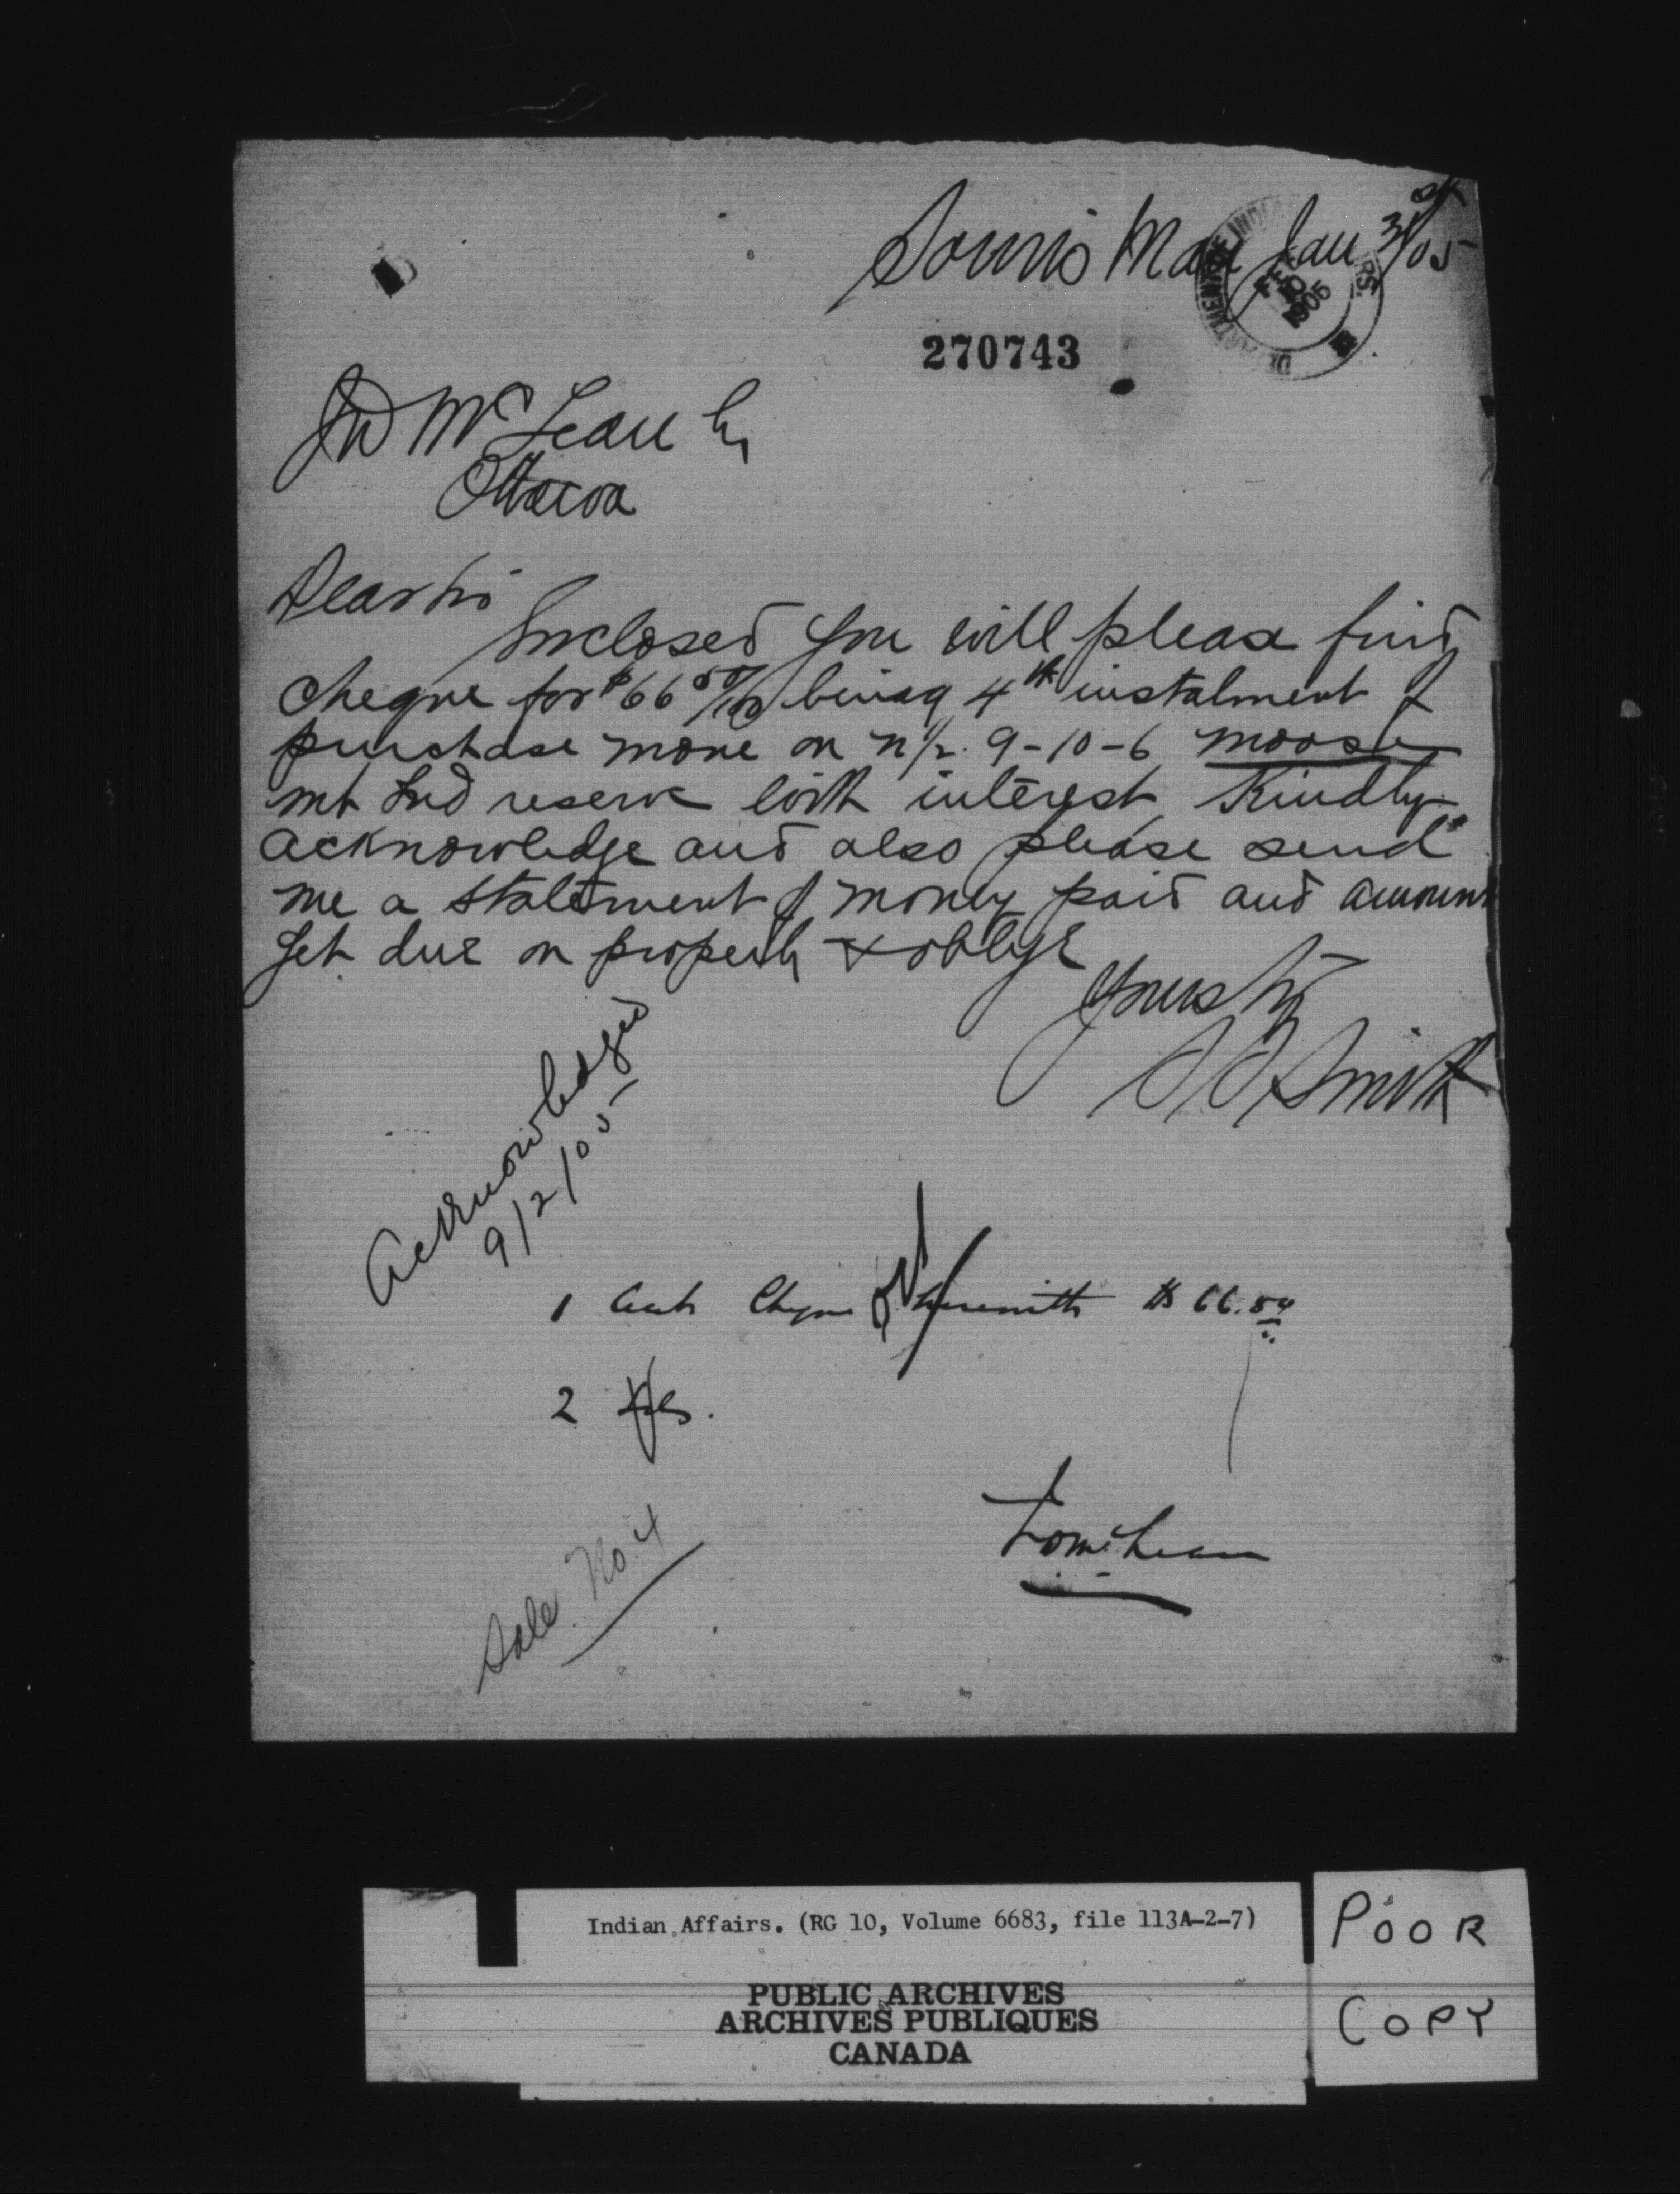 Souris Man Jan 31st/05
DEPARTMENT OF INDIAN AFFAIRS.
FEB
1905
270743
JD McLean
Ottawa
Dear Sir
Inclosed you will please find
cheque for $66 50/100 being 4th instalment of
purchase mone on n 1/2. 9-10-6 moose
mt Ind reserve with interest Kindly
acknowledge and also please send
me a statement of money paid and amount
yet due on property & oblige
Yours
Smith
Acknowledged
9/2/05
1 Cheque $66.50
2
Sale No. 4
Indian Affairs. (RG 10, Volume 6683, file 113A-2-7)
PUBLIC ARCHIVES
ARCHIVES PUBLIQUES
CANADA
POOR
COPY